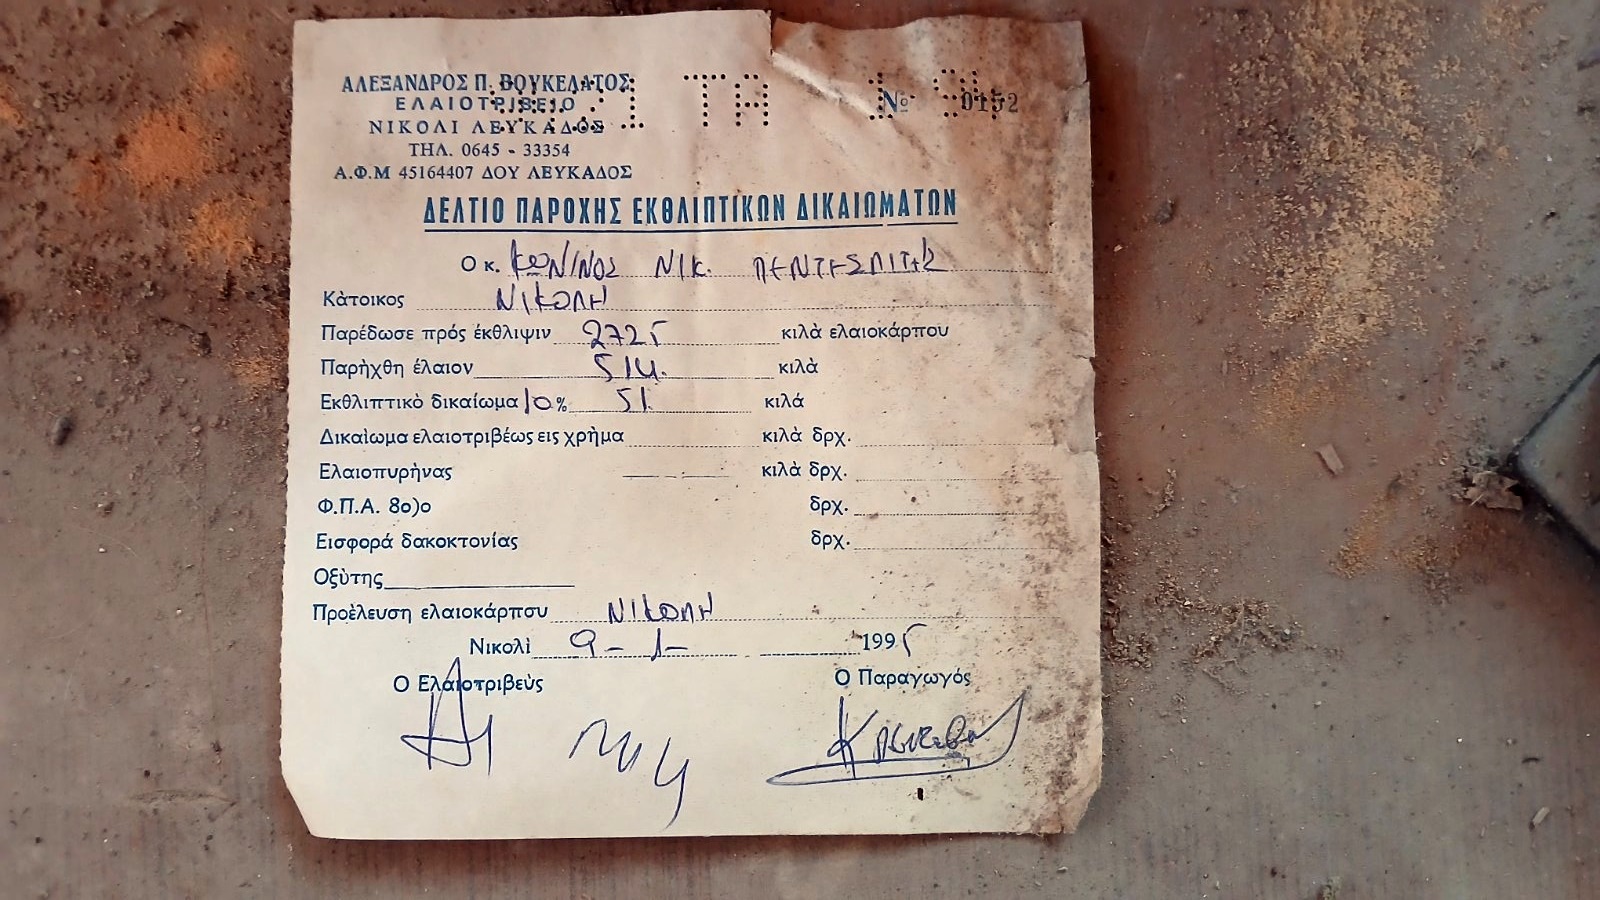 ΑΛΕΞΑΝΔΡΟΣ Π. ΒΟΥΚΕΛΑΤΟΣ
ΕΛΑΙΟΤΡΙΒΕΙΟ
ΝΙΚΟΛΙ ΛΕΥΚΑΔΟΣ
ΤΗΛ. 0645 - 33354
Α.Φ.Μ 45164407 ΔΟΥ ΛΕΥΚΑΔΟΣ
ΤΑ
Νο 0152
ΔΕΛΤΙΟ ΠΑΡΟΧΗΣ ΕΚΘΛΙΠΤΙΚΩΝ ΔΙΚΑΙΩΜΑΤΩΝ
Ο κ. ΚΩΝ/ΝΟΣ ΝΙΚ. ΠΕΝΤΕΣΠΙΤΗΣ
Κὰτοικος ΝΙΚΟΛΗ
Παρέδωσε πρός έκθλιψιν 2725 κιλὰ ελαιοκάρπου
Παρὴχθη έλαιον 514. κιλὰ
Εκθλιπτικὸ δικαίωμα 10% 51 κιλά
Δικαὶωμα ελαιοτριβέως εις χρὴμα κιλὰ δρχ.
Ελαιοπυρήνας κιλὰ δρχ.
Φ.Π.Α. 8ο)ο δρχ.
Εισφορά δακοκτονίας δρχ.
Οξὺτης
Προὲλευση ελαιοκάρπου ΝΙΚΟΛΗ
Νικολὶ 9-1- 1995
Ο Ελαιοτριβεὺς Ο Παραγωγός